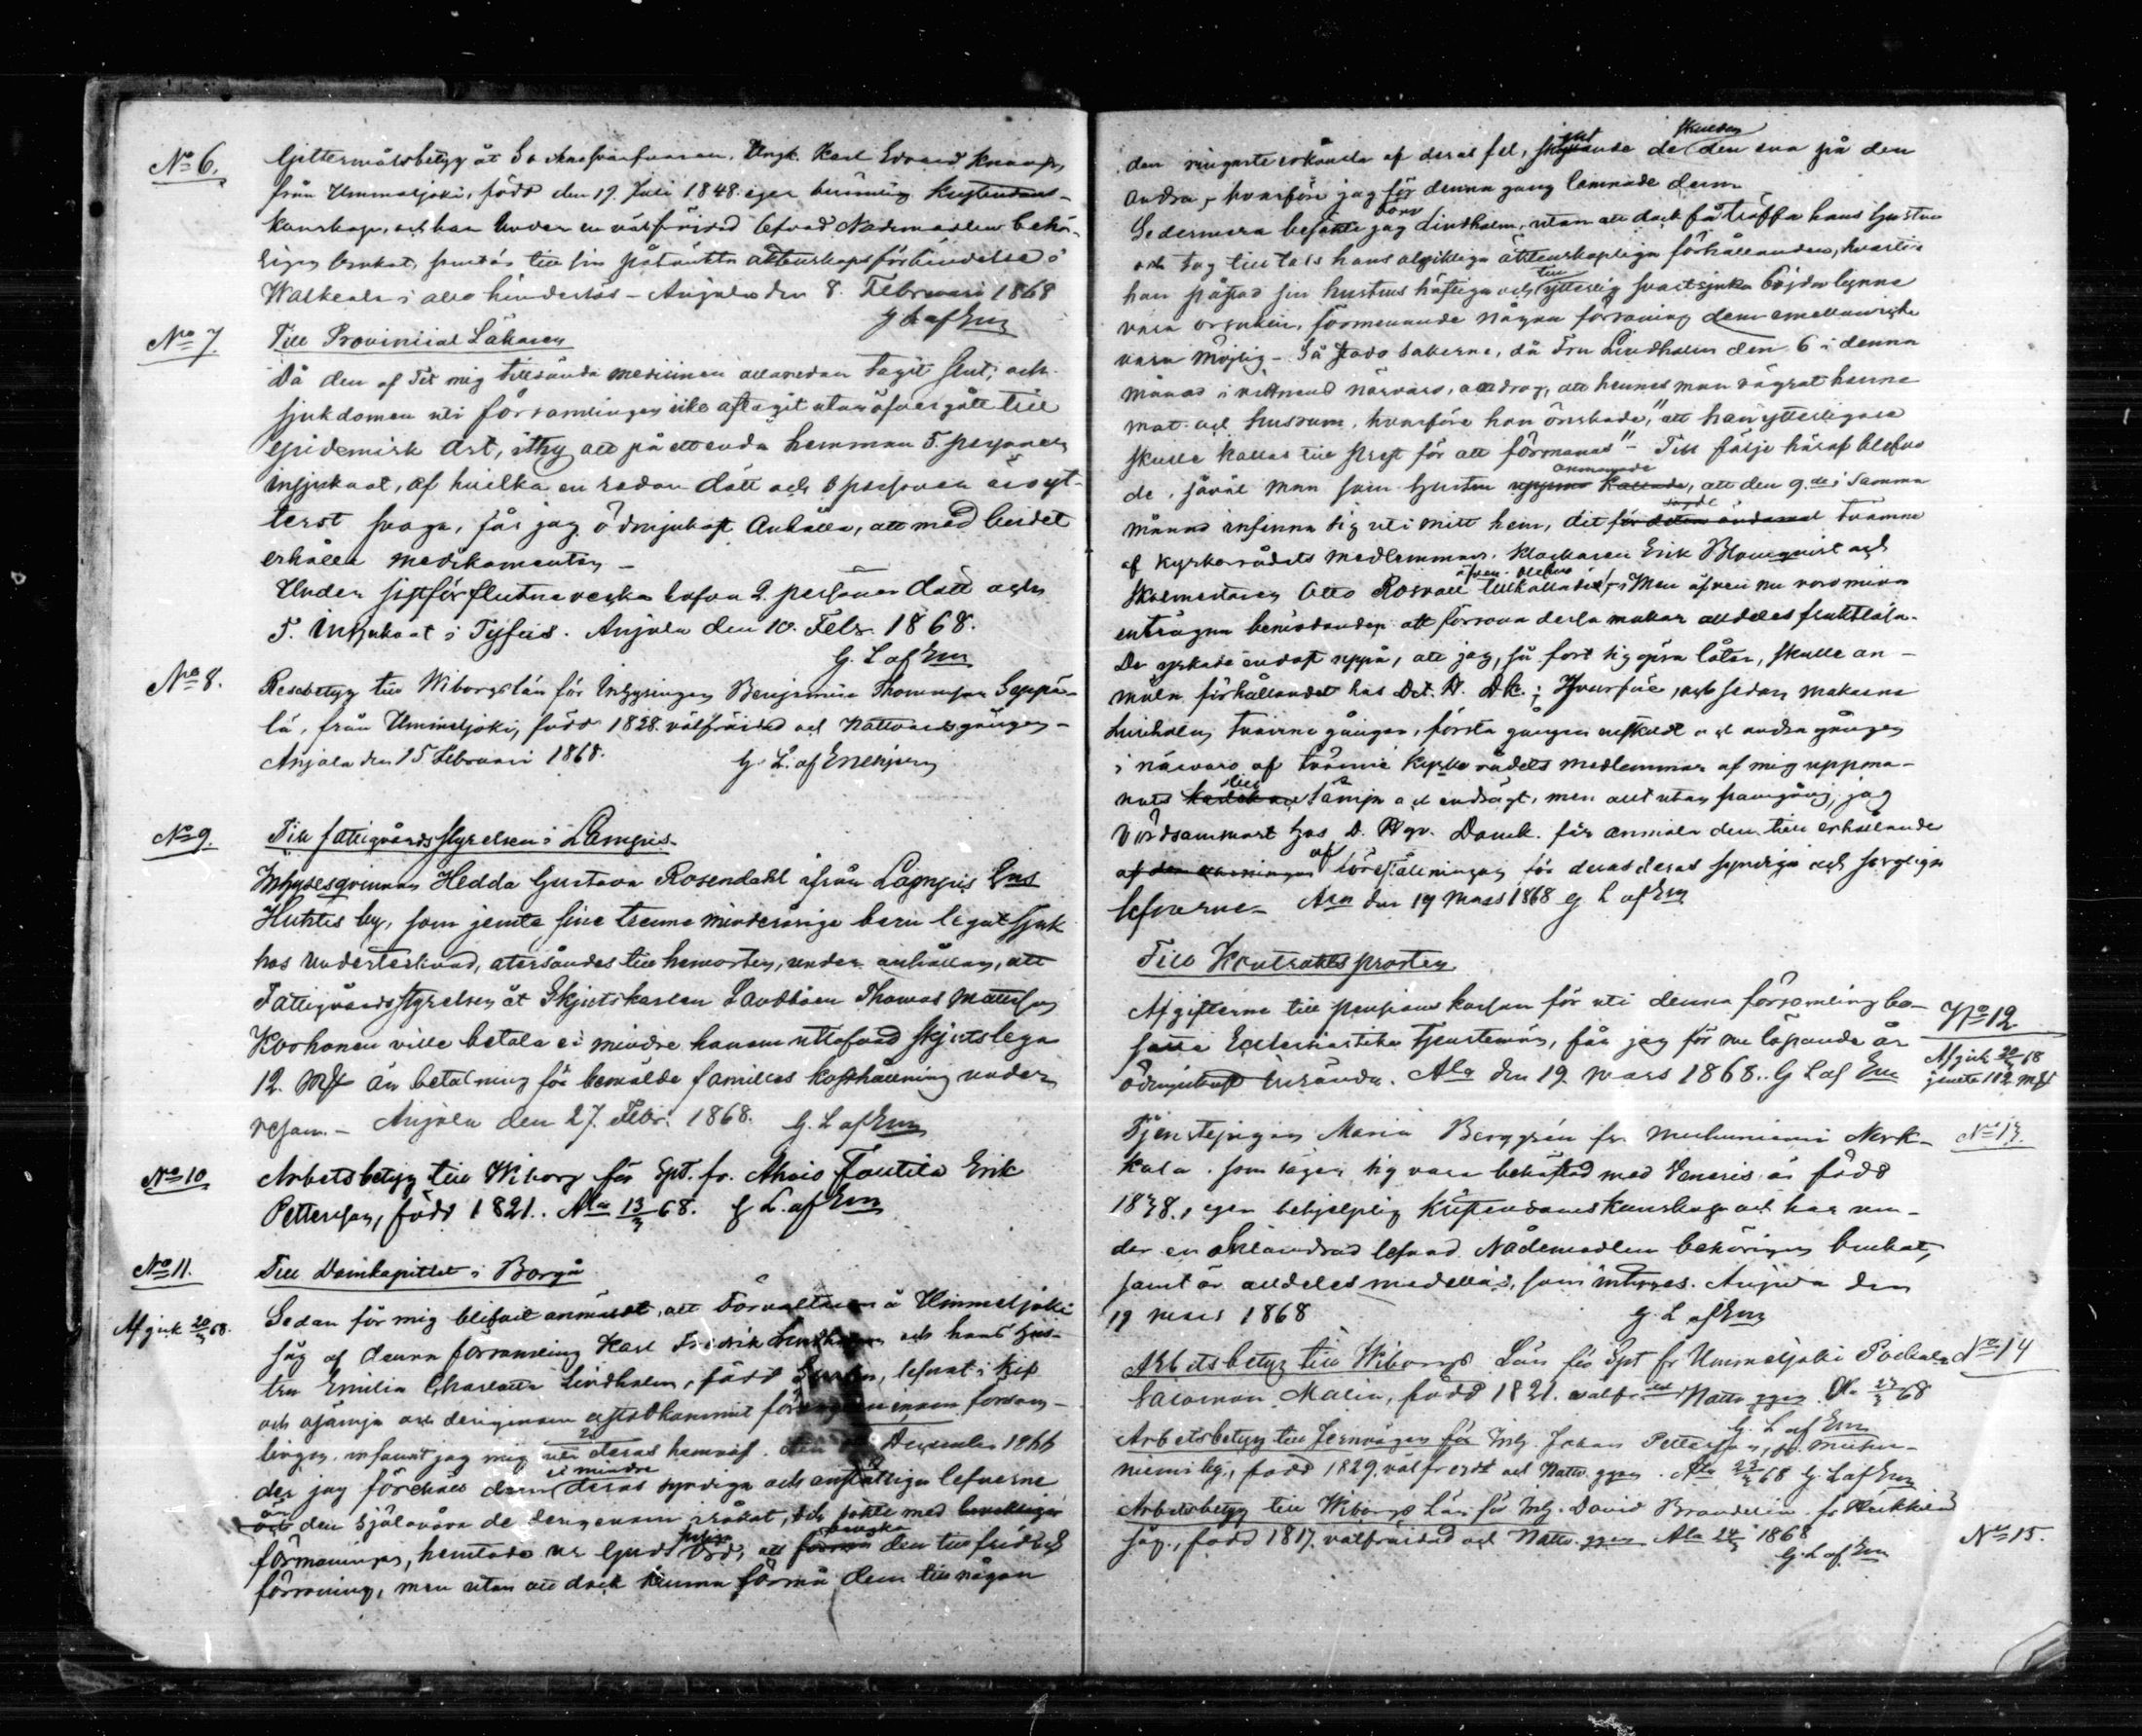 No 6. Gittermålsbetyg åt Karl Edvard
från Ummeljoki, född den 17. Juli 1848. eger
kunskap, och har under en välfräjdad lefvad Nademedlen behö-
rigen brukat, samt är till sin påtänkta äktenskapsförbindelse i
Walkeala i allo hinderlös - Anjala den 8 Februari 1868
G L af Enn
No 7. Till Provincial Läkaren
Då den af Tit mig tillsända medicinen allaredan tagit slut, och
sjukdomen uti församlingen icke aftagit utan öfvergått till
epidemisk art, ithy att på ett enda hemman 5. personer
insjuknat, af hvilka en redan dött och personer äro yt-
terst svaga, får jag ödmjukast anhålla, att med budet
erhålla medikamenter -
Under sistförflutne vecka hafva 2. personer dött och
5. insjuknat i Tyfus. Anjala den 10. Febr. 1868.
G. L af Enn
No 8. Resebetyg till Wiborgs län för Inhysingen Benjamin Thomasson Seppä-
lä, från Ummeljoki, född 1828. välfräjdad och Nattvardsgången -
Anjala den 15 Februari 1868. G. L. af Enehjelm
No 9. Till fattigvårdsstyrelsen i Lampis
Inhyseqvinnan Hedda Gustava Rosendahl ifrån Lampis
Huhtis by, som jemte sine trenne minderåriga barn legat sjuk
hos undertecknad, återsändes till hemorten, under anhållan, att
Fattigvårdsstyrelsen åt Skjutskarlen Landbon Thomas Mattsson
Korhonen ville betala ei mindre honom utlofvad skjutslega
12. mk än betalning för bemälde familles kosthållning under
resan. - Anjala den 27. Febr. 1868. G. L af Enn
No 10 Arbetsbetyg till Wiborg för Spt. fr. Ahvio Tontila Erik
Pettersson, född 1821. Ala 13/3 68. G L. af Enn
No 11. Till Domkapitlet i Borgå
Afgick 20/3 68. Sedan för mig blifvit anmäldt, att Förvaltaren å Ummeljoki
såg af denna församling Karl Fredrik Lindholm och hans hus-
tru Emilia Charlotta Lindholm, född lefvat i kif
och osämja och derigenom åstadkommit inom försam-
lingen, infann jag mig uti deras hemvist. den December 1866
der jag förehöll dem ei mindre deras syndiga och anstötliga lefverne
än den själavåda de derigenom iråkat, och sökte med
förmaningar, hemtade ur Guds heliga Ord, att den till frid och
försoning, men utan att dock kunna förmå dem till någon
den ringaste erkänsla af deras fel, skjutande de skulden den ena på den
andra, hvarföre jag för denna gång lemnade dem
Sedermera besökte jag Lindholm, utan att dock få träffa hans hustru
och tog till tals hans olyckliga äktenskapliga förhållanden, hvartill
han påstod sin hustrus häftiga och till ytterlig svartsjuka böjda lynne
vara orsaken, förmenande någon försoning dem emellan icke
vara möjlig - Så stodo sakerna, då Fru Lindholm den 6 i denna
månad i vittnens närvaro, androg, att hennes man vägrat henne
mat och husrum, hvarföre hon önskade, "att han ytterligare
skulle kallas till prest för att förmanas" - Till följe häraf blefvo
de, såväl man som hustru anmanade, att den 9.de i samma
månad infinna sig uti mitt hem, dit tvänne
af Kyrkorådets medlemmar. Klockaren Erik Blomqvist och
Skolmästaren Otto Rosvall äfven blefvo tillkallade, - Men äfven nu voro mina
enträgna bemödanden att försona dessa makar alldeles fruktlösa.
De yrkade endast uppå, att jag, så fort sig göra låter, skulle an-
mäla förhållandet hos Dct. W. Dk.; Hvarföre, och sedan makarne
Lindholm tvänne gånger, första gången enskildt och andra gången
i närvaro af tvänne Kyrkorådets medlemmar af mig uppma-
nats till sämja och endrägt, men allt utan framgång, jag
vördsammast hos D. Wv. Domk. får anmäla den till erhållande
af föreställningar för deras syndiga och sorgliga
lefverne - Ala den 19 Mars 1868 G L af Enn
Till Kontraktsprosten
No 12 Afgick 20/3 68 jemte 112 mk
Afgifterna till pensions kassan för uti denna församling be-
fintlige Ecclesiastika Tjenstemän, får jag för nu löpande år
ödmjukast insända. Ala den 19. Mars 1868. G L af Enn
No 13. Tjenstepigan Maria Berggrén fr Muhuniemi Mark-
kala, som säger sig vara behäftad med Veneris är född
1838, eger behjelplig Kristendomskunskap och har un-
der en oklandrad lefvnad Nådemedlen behörigen brukat,
samt är alldeles medellös, som intygas. Anjala den
19 mars 1868 G. L af Enn
No 14 Arbetsbetyg till Wiborgs Län för Spt fr Ummeljoki
Salomon Malin, född 1821. välfräjdad Nattv. ggen Ala 23/3 68
G. L af Enn
Arbetsbetyg till Jernvägen för Inh. Johan Pettersson, fr. Muhu-
niemi by, född 1829. välfrejd och Nattv. ggen. Ala 23/3 68 G. L af Enn
Arbetsbetyg till Wiborgs Län för Inh. David Brandelin fr
såg., född 1817. välfräjdad och Nattv. ggen Ala 24/3 1868
No 15.
G. L af Enn